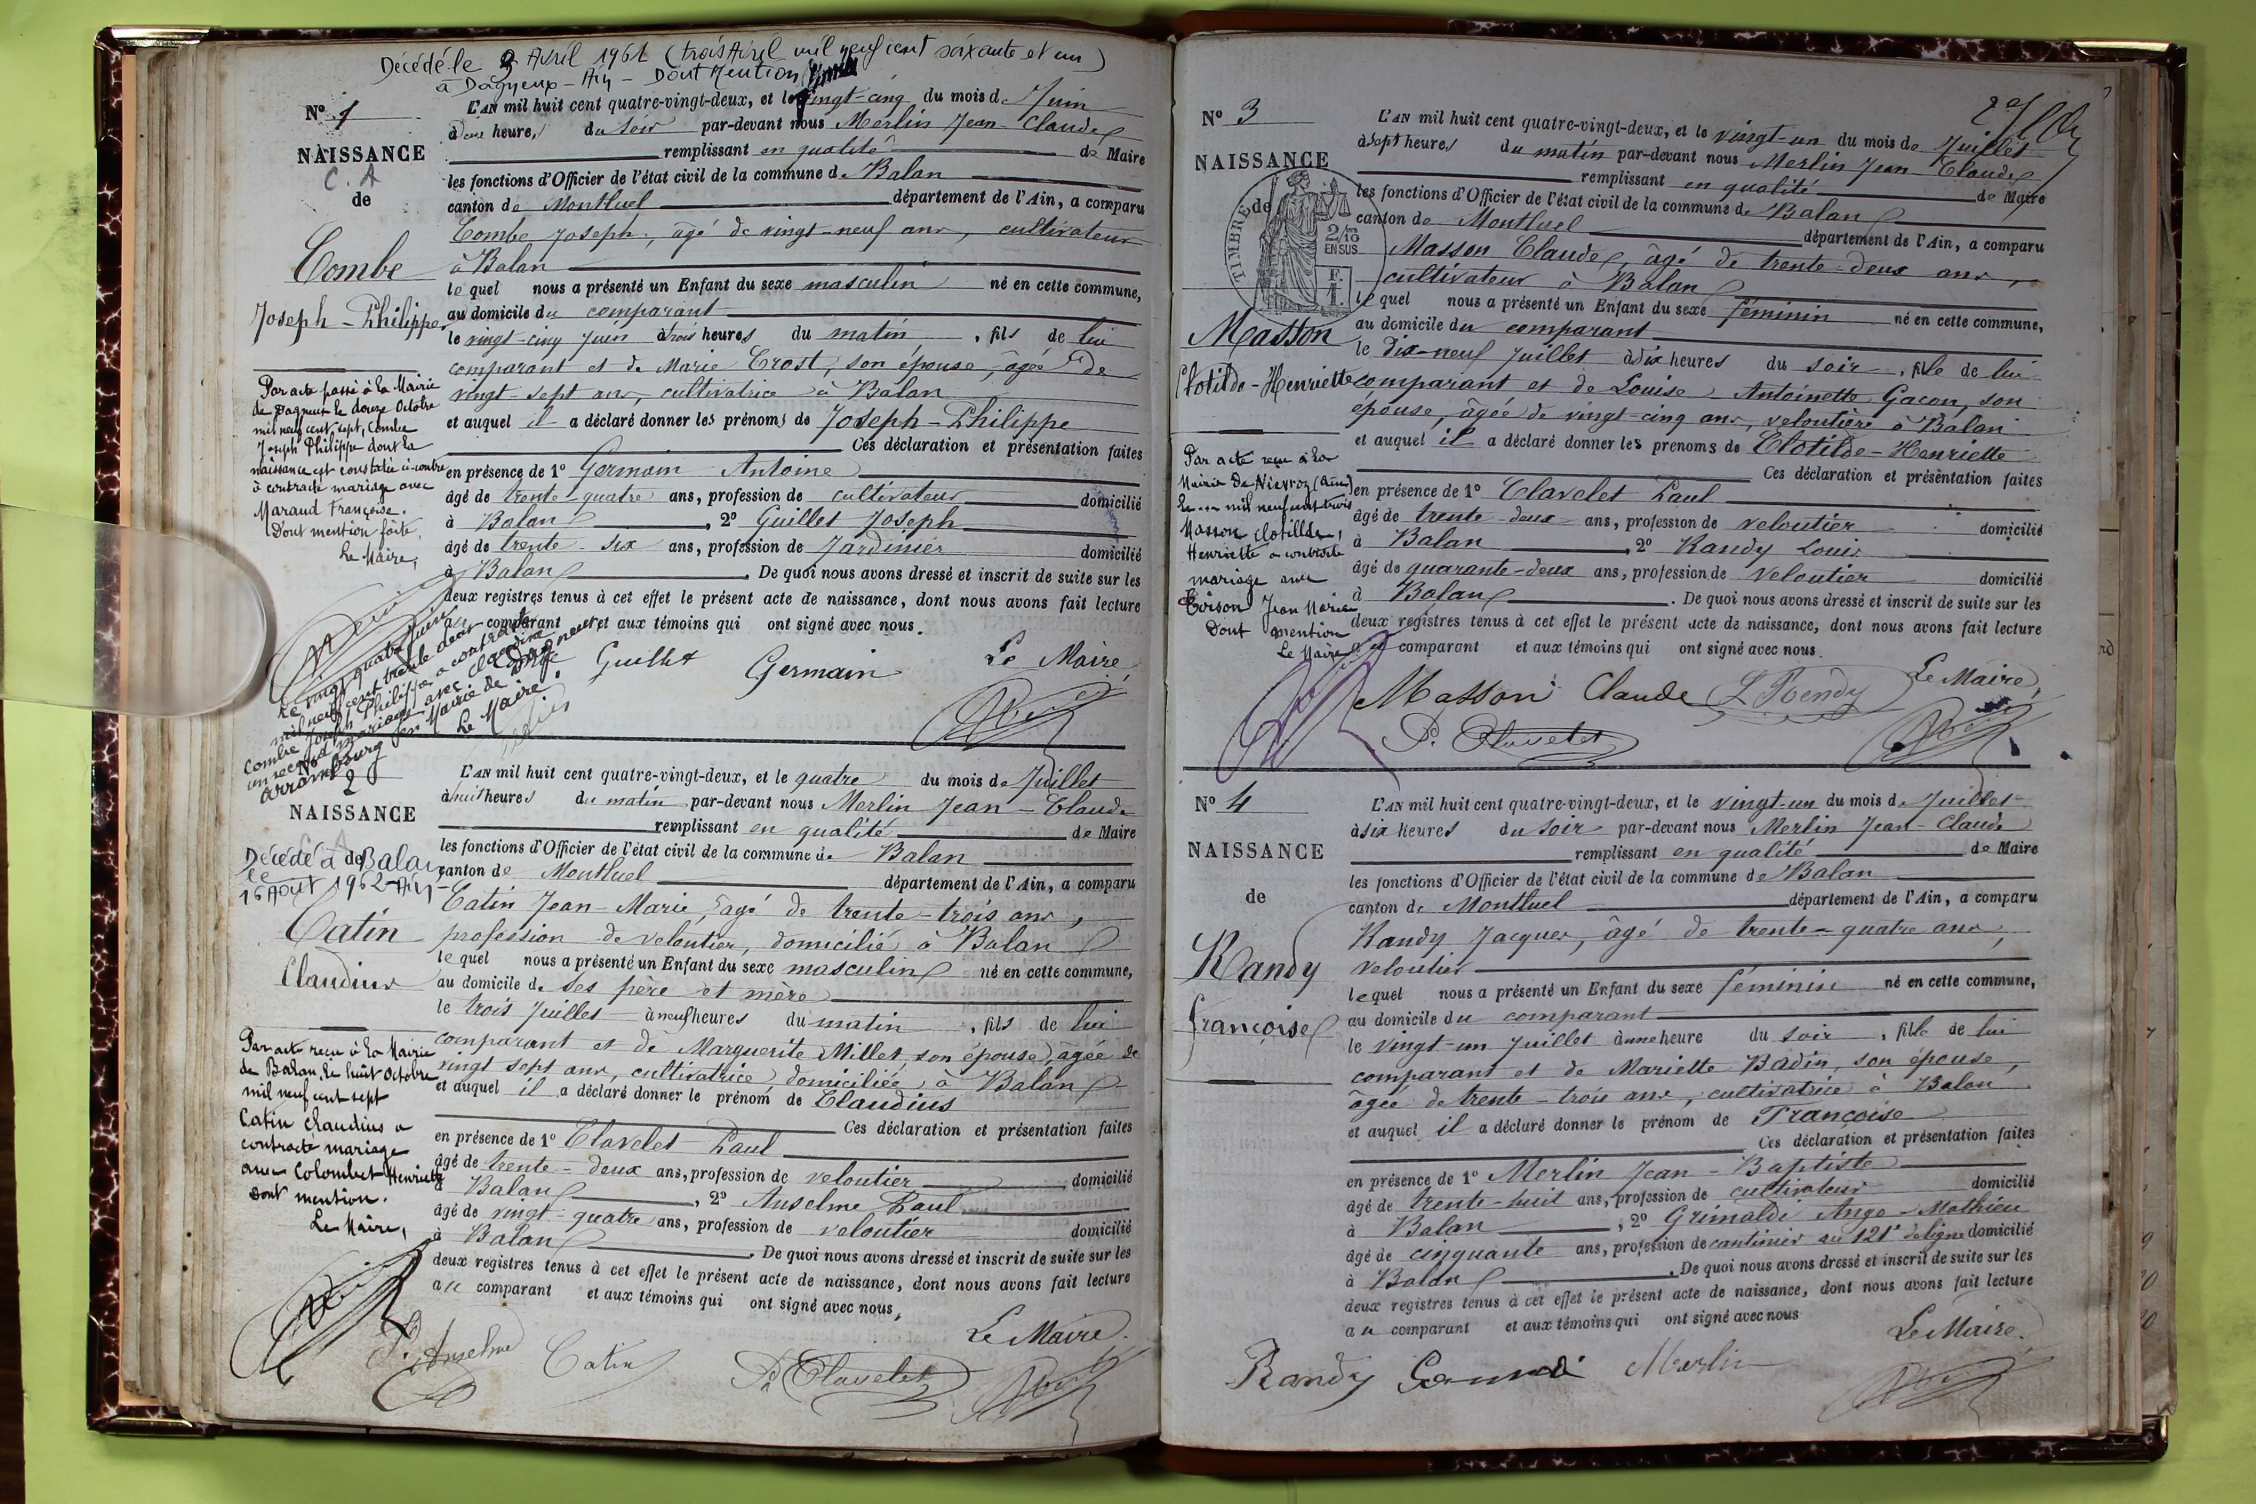 Décédé le 3 Avril 1961 (trois Avril mil neuf cent soixante et un)
à Dagneux - Ain - Dont Mention
N° 1
NAISSANCE
C. A
de
Combe
Joseph-Philippe
Par acte passé à la Mairie
de Dagneux le douze Octobre
mil neuf cent sept, Combe
Joseph Philippe dont la
naissance est constatée ci-contre
a contracté mariage avec
Maraud Françoise.
Dont mention faite.
Le Maire,
Le vingt quatre
mil neuf cent trente deux
Combe Joseph Philippe a contracté
un second mariage avec Claudine
Arrambourg en Mairie de Dagneux
Le Maire.
L'AN mil huit cent quatre-vingt-deux, et le vingt-cinq du mois de Juin
à deux heures du soir par-devant nous Merlin Jean-Claude
remplissant en qualité de Maire
les fonctions d'Officier de l'état civil de la commune de Balan
canton de Montluel département de l'Ain, a comparu
Combe Joseph, âgé de vingt-neuf ans, cultivateur
à Balan
lequel nous a présenté un Enfant du sexe masculin né en cette commune,
au domicile du comparant
le vingt-cinq Juin à trois heures du matin, fils de lui
comparant et de Marie Crost, son épouse, âgée de
vingt-sept ans, cultivatrice à Balan
et auquel il a déclaré donner les prénoms de Joseph-Philippe
Ces déclaration et présentation faites
en présence de 1° Germain Antoine
âgé de trente-quatre ans, profession de cultivateur domicilié
à Balan, 2° Guillet Joseph
âgé de trente-six ans, profession de Jardinier domicilié
à Balan. De quoi nous avons dressé et inscrit de suite sur les
deux registres tenus à cet effet le présent acte de naissance, dont nous avons fait lecture
au comparant et aux témoins qui ont signé avec nous.
Combe Guillet Germain Le Maire,
N° 2
NAISSANCE
C. A
de
Décédé à Balan
le
16 Août 1962 - Ain -
Catin
Claudius
Par acte reçu à la Mairie
de Balan, le huit Octobre
mil neuf cent sept
Catin Claudius a
contracté mariage
avec Colombet Henriette
Dont mention.
Le Maire,
L'AN mil huit cent quatre-vingt-deux, et le quatre du mois de Juillet
à huit heures du matin par-devant nous Merlin Jean-Claude
remplissant en qualité de Maire
les fonctions d'Officier de l'état civil de la commune de Balan
canton de Montluel département de l'Ain, a comparu
Catin Jean-Marie, âgé de trente-trois ans,
profession de veloutier, domicilié à Balan
lequel nous a présenté un Enfant du sexe masculin né en cette commune,
au domicile de ses père et mère
le trois Juillet à neuf heures du matin, fils de lui
comparant et de Marguerite Millet, son épouse, âgée de
vingt sept ans, cultivatrice, domiciliée à Balan
et auquel il a déclaré donner le prénom de Claudius
Ces déclaration et présentation faites
en présence de 1° Clavelet Paul
âgé de trente-deux ans, profession de veloutier domicilié
à Balan, 2° Anselme Paul
âgé de vingt-quatre ans, profession de veloutier domicilié
à Balan. De quoi nous avons dressé et inscrit de suite sur les
deux registres tenus à cet effet le présent acte de naissance, dont nous avons fait lecture
au comparant et aux témoins qui ont signé avec nous,
P. Anselme Catin P. Clavelet Le Maire.
N° 3
NAISSANCE
de
TIMBRE
2/10
EN SUS
Masson
Clotilde-Henriette
Par acte reçu à la
Mairie de Nievroz (Ain)
le ... mil neuf cent trois
Masson Clotillde,
Henriette a contracté
mariage avec
Toison Jean Marie
Dont mention
Le Maire
L'AN mil huit cent quatre-vingt-deux, et le vingt-un du mois de Juillet
à sept heures du matin par-devant nous Merlin Jean-Claude
remplissant en qualité de Maire
les fonctions d'Officier de l'état civil de la commune de Balan
canton de Montluel département de l'Ain, a comparu
Masson Claude, âgé de trente-deux ans,
cultivateur à Balan
lequel nous a présenté un Enfant du sexe féminin né en cette commune,
au domicile du comparant
le dix-neuf Juillet à dix heures du soir, fille de lui
comparant et de Louise Antoinette Gacon, son
épouse, âgée de vingt-cinq ans, veloutière à Balan
et auquel il a déclaré donner les prénoms de Clotilde-Henriette
Ces déclaration et présentation faites
en présence de 1° Clavelet Paul
âgé de trente-deux ans, profession de veloutier domicilié
à Balan, 2° Randy Louis
âgé de quarante-deux ans, profession de Veloutier domicilié
à Balan. De quoi nous avons dressé et inscrit de suite sur les
deux registres tenus à cet effet le présent acte de naissance, dont nous avons fait lecture
au comparant et aux témoins qui ont signé avec nous.
Masson Claude L. Rendy Le Maire,
P. Clavelet
N° 4
NAISSANCE
de
Randy
Françoise
L'AN mil huit cent quatre-vingt-deux, et le vingt-un du mois de Juillet
à six heures du soir par-devant nous Merlin Jean-Claude
remplissant en qualité de Maire
les fonctions d'Officier de l'état civil de la commune de Balan
canton de Montluel département de l'Ain, a comparu
Randy Jacques, âgé de trente-quatre ans,
veloutier
lequel nous a présenté un Enfant du sexe féminin né en cette commune,
au domicile du comparant
le vingt-un Juillet à une heure du soir, fille de lui
comparant et de Mariette Badin, son épouse,
âgée de trente-trois ans, cultivatrice à Balan
et auquel il a déclaré donner le prénom de Françoise
Ces déclaration et présentation faites
en présence de 1° Merlin Jean-Baptiste
âgé de trente-huit ans, profession de cultivateur domicilié
à Balan, 2° Grimaldi Ange-Mathieu
âgé de cinquante ans, profession de cantinier au 121e de ligne domicilié
à Balan. De quoi nous avons dressé et inscrit de suite sur les
deux registres tenus à cet effet le présent acte de naissance, dont nous avons fait lecture
au comparant et aux témoins qui ont signé avec nous
Randy Merlin Le Maire.